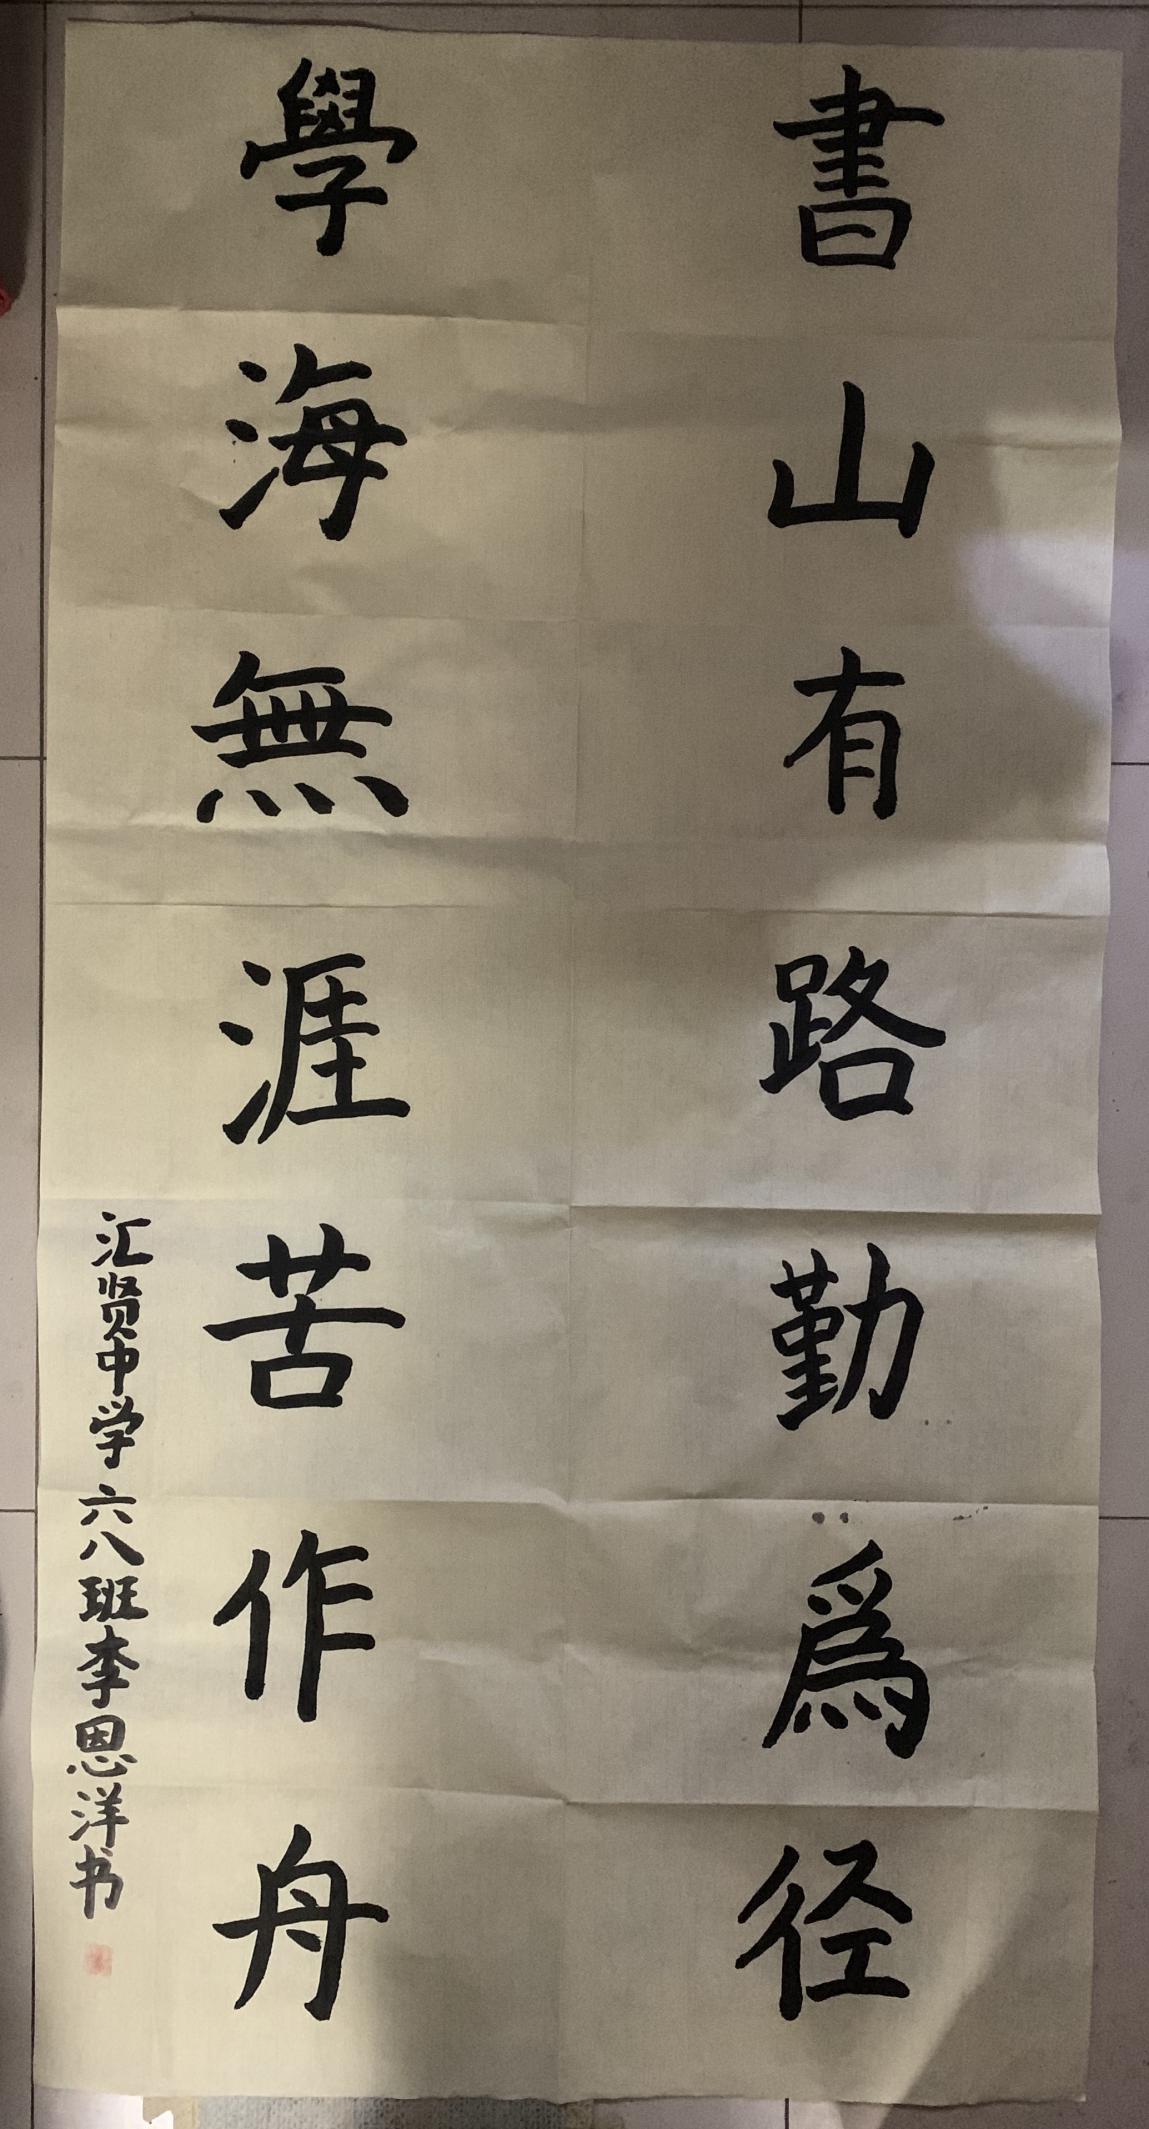 書山有路勤爲径
學海無涯苦作舟
汇贤中学六八班李恩洋书